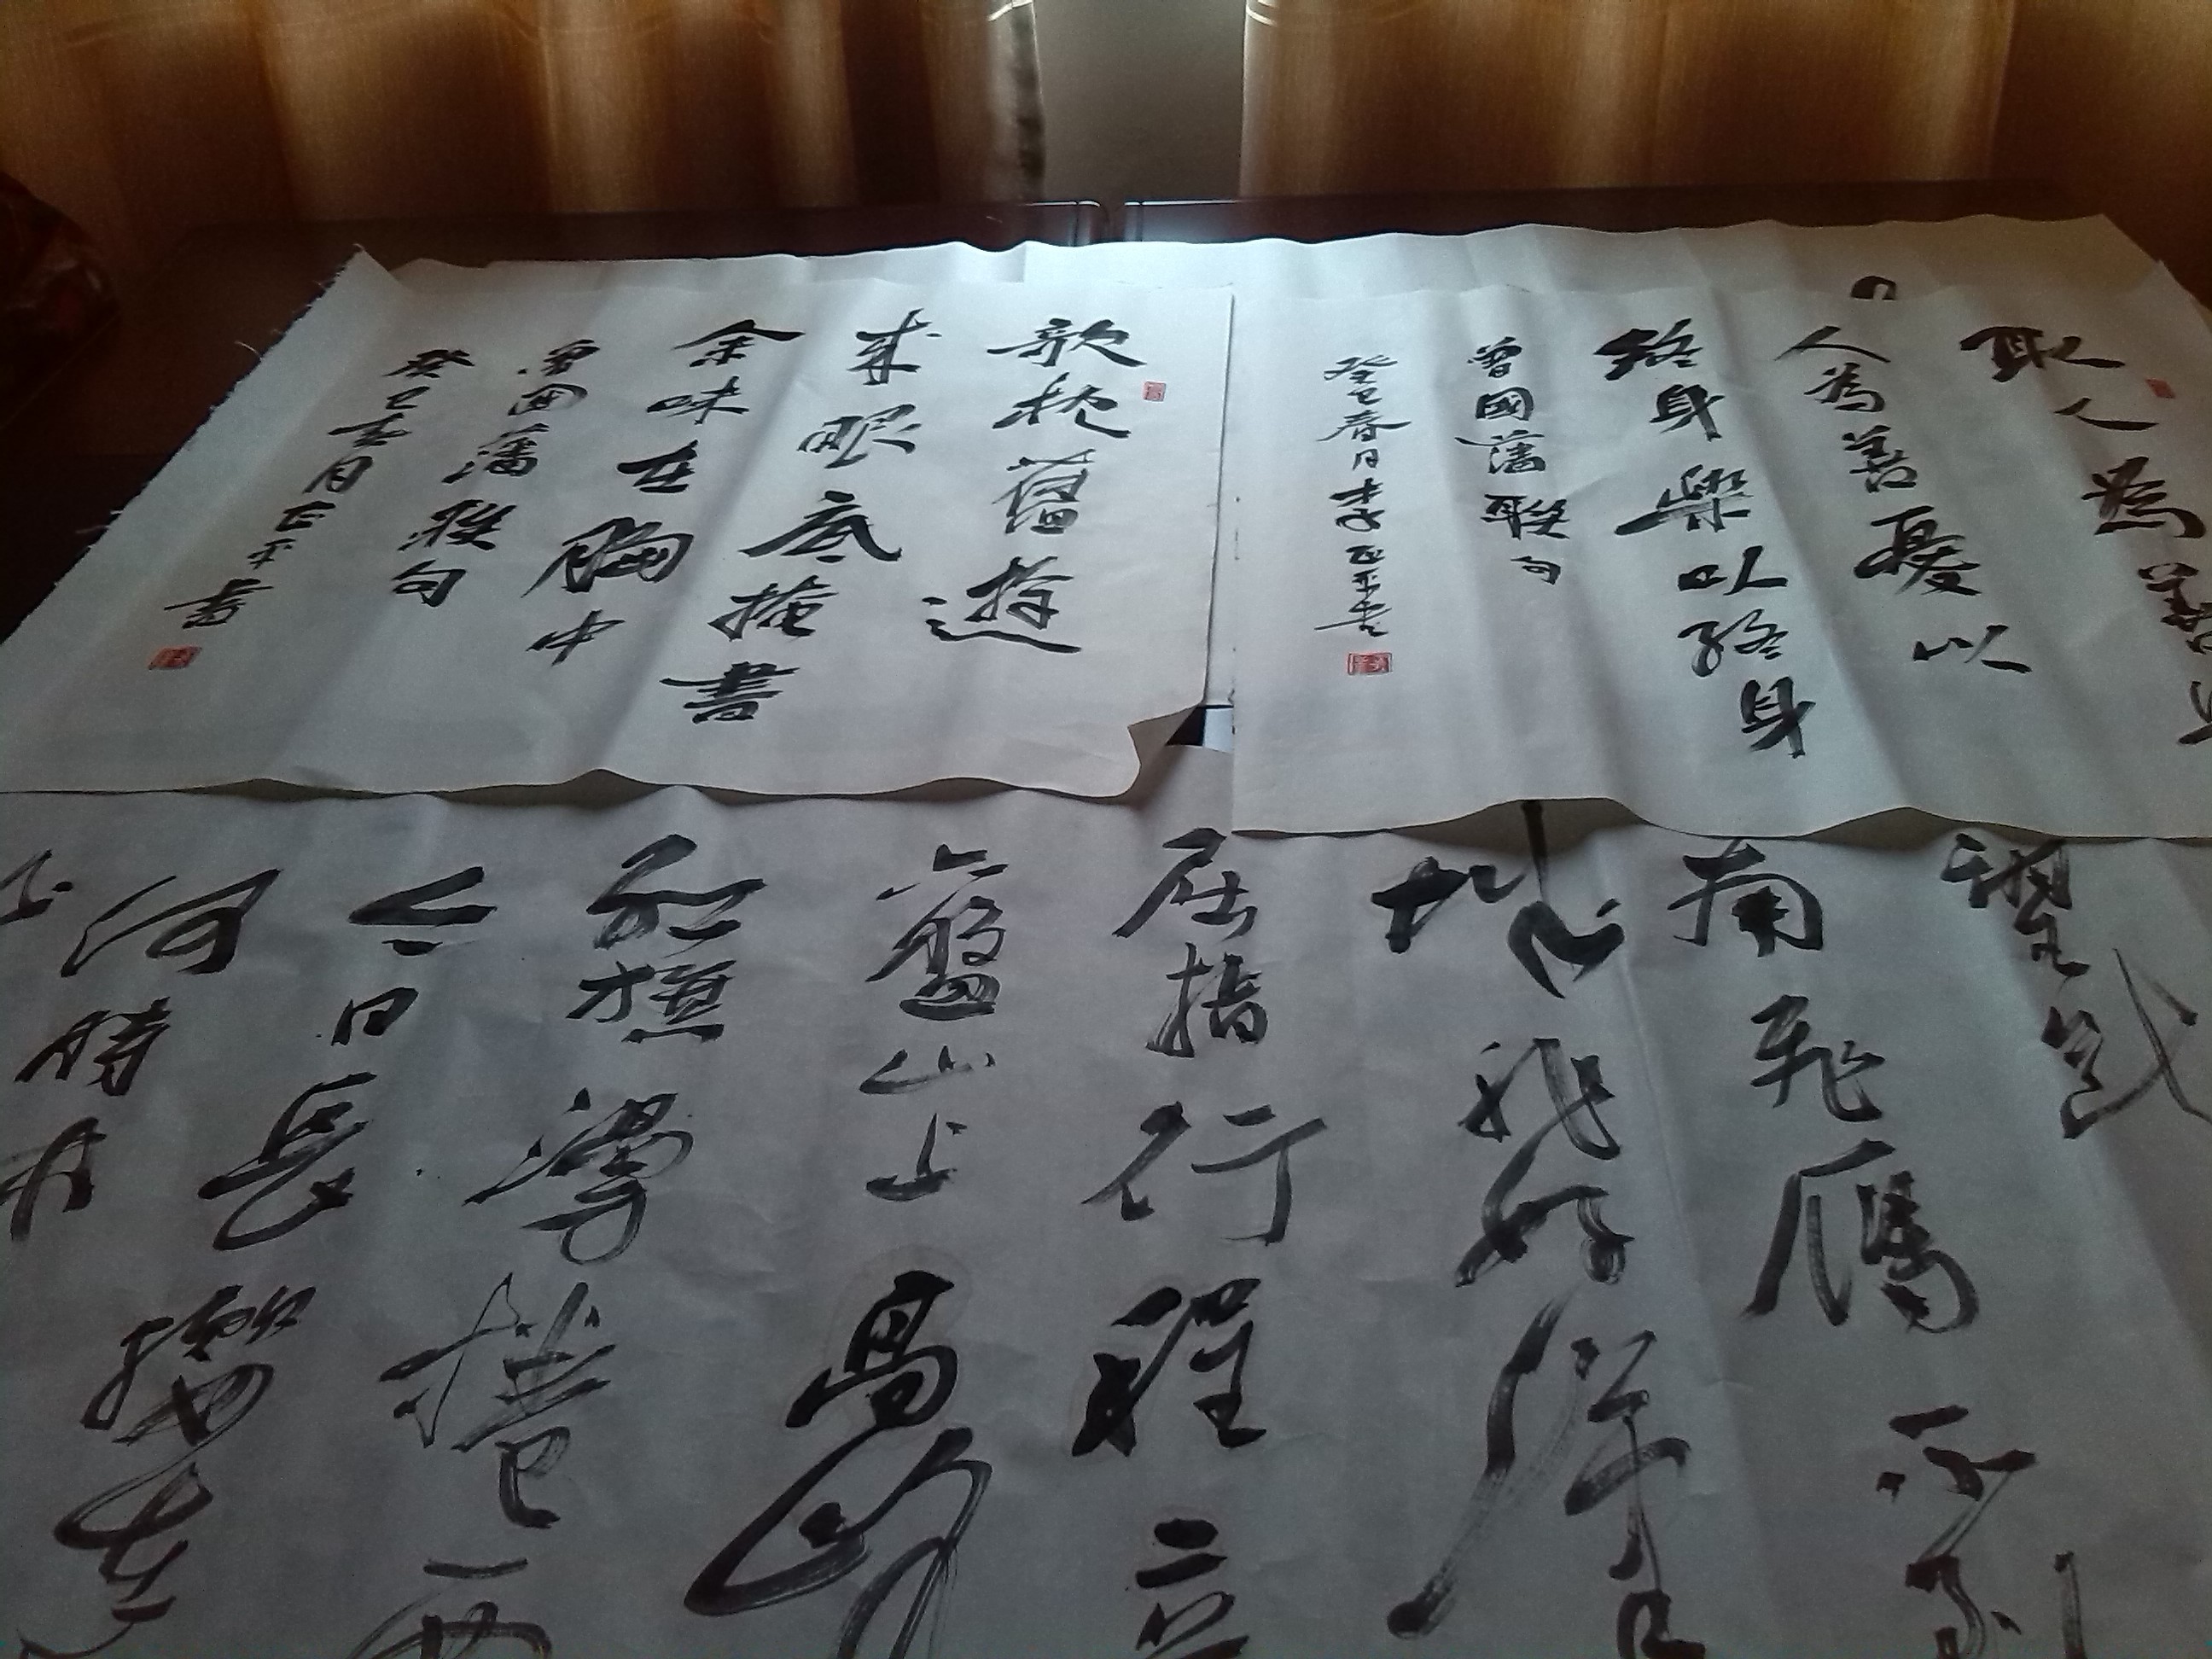 取人為善與
人為善憂以
終身樂以終身
曾國藩聯句
癸巳春月李正平書
欹枕舊遊
來眼底掩書
余味在胸中
曾國藩聯句
癸巳春月正平書
望斷
南飛雁不到
城非好漢
屈指行程二
六盤山上高峰
紅旗漫捲西
今日長纓在
何時